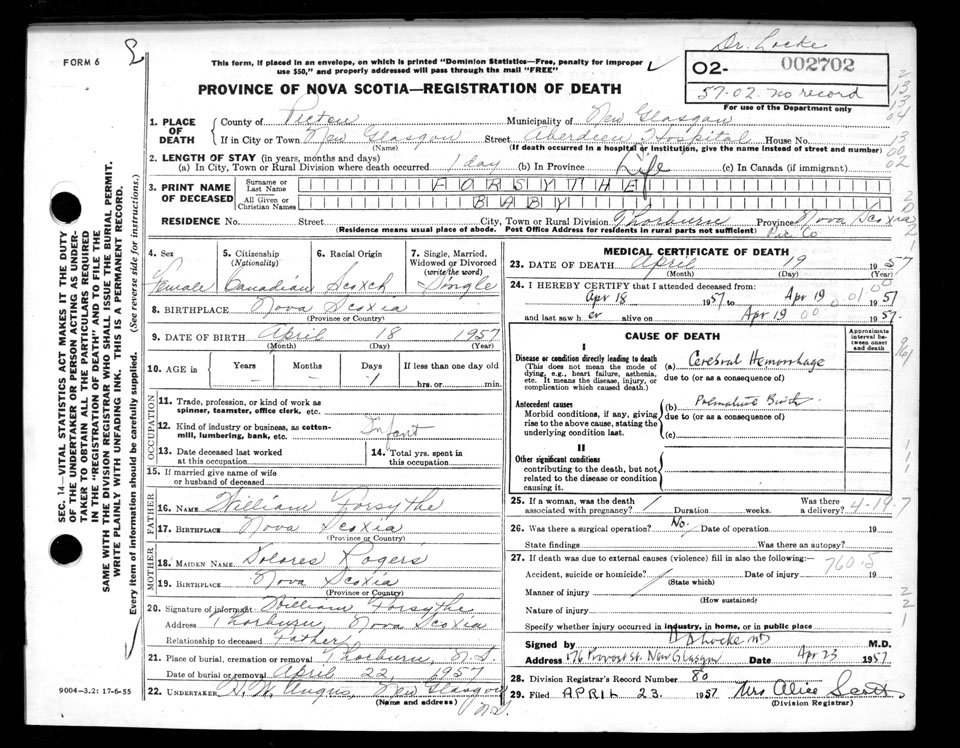 Dr. Locke
FORM 6
This form, if placed in an envelope, on which is printed "Dominion Statistics—Free, penalty for improper
use $50," and properly addressed will pass through the mail "FREE"
O2- 002702
57-02 no record
For use of the Department only
PROVINCE OF NOVA SCOTIA—REGISTRATION OF DEATH
1. PLACE OF DEATH County of Pictou Municipality of New Glasgow
If in City or Town New Glasgow Street Aberdeen Hospital House No.
(Name) (If death occurred in a hospital or institution, give the name instead of street and number)
2. LENGTH OF STAY (in years, months and days)
(a) In City, Town or Rural Division where death occurred 1 day (b) In Province Life (c) In Canada (if immigrant)
3. PRINT NAME OF DECEASED Surname or Last Name FORSYTHE
All Given or Christian Names BABY
RESIDENCE No. Street City, Town or Rural Division Thorburn Province Nova Scotia
(Residence means usual place of abode. Post Office Address for residents in rural parts not sufficient) Pic Co
4. Sex 5. Citizenship (Nationality) 6. Racial Origin 7. Single, Married, Widowed or Divorced (write the word)
Female Canadian Scotch Single
8. BIRTHPLACE Nova Scotia
(Province or Country)
9. DATE OF BIRTH April 18 1957
(Month) (Day) (Year)
10. AGE in Years Months Days If less than one day old
- - 1 hrs. or min.
OCCUPATION
11. Trade, profession, or kind of work as spinner, teamster, office clerk, etc.
12. Kind of industry or business, as cotton-mill, lumbering, bank, etc. Infant
13. Date deceased last worked at this occupation 14. Total yrs. spent in this occupation
15. If married give name of wife or husband of deceased
FATHER
16. NAME William Forsythe
17. BIRTHPLACE Nova Scotia
(Province or Country)
MOTHER
18. MAIDEN NAME Dolores Rogers
19. BIRTHPLACE Nova Scotia
(Province or Country)
20. Signature of informant William Forsythe
Address Thorburn, Nova Scotia
Relationship to deceased Father
21. Place of burial, cremation or removal Thorburn, N.S.
Date of burial or removal April 22, 1957
22. UNDERTAKER Angus, New Glasgow
(Name and address) N.S.
9004-3.2: 17-6-55
MEDICAL CERTIFICATE OF DEATH
23. DATE OF DEATH April 19 1957
(Month) (Day) (Year)
24. I HEREBY CERTIFY that I attended deceased from:
Apr 18 1957 to Apr 19 1957
and last saw her alive on Apr 19 1957.
CAUSE OF DEATH
Approximate interval between onset and death
I
Disease or condition directly leading to death
(This does not mean the mode of dying, e.g., heart failure, asthenia, etc. It means the disease, injury, or complication which caused death.)
(a) Cerebral Hemorrhage
due to (or as a consequence of)
Antecedent causes
Morbid conditions, if any, giving rise to the above cause, stating the underlying condition last.
(b) Premature Birth
due to (or as a consequence of)
(c)
II
Other significant conditions
contributing to the death, but not related to the disease or condition causing it.
25. If a woman, was the death associated with pregnancy? Duration weeks. Was there a delivery? 4-19-7
26. Was there a surgical operation? No. Date of operation 19
State findings Was there an autopsy?
27. If death was due to external causes (violence) fill in also the following:— 760.5
Accident, suicide or homicide? Date of injury 19
(State which)
Manner of injury
(How sustained)
Nature of injury
Specify whether injury occurred in industry, in home, or in public place
Signed by Locke MD M.D.
Address 176 Provost St. New Glasgow Date Apr 23 1957
28. Division Registrar's Record Number 80
29. Filed APRIL 23. 1957 Mrs Alice Scott
(Division Registrar)
SEC. 14—VITAL STATISTICS ACT MAKES IT THE DUTY
OF THE UNDERTAKER OR PERSON ACTING AS UNDER-
TAKER TO OBTAIN ALL THE PARTICULARS REQUIRED
IN THE "REGISTRATION OF DEATH" AND TO FILE THE
SAME WITH THE DIVISION REGISTRAR WHO SHALL ISSUE THE BURIAL PERMIT.
WRITE PLAINLY WITH UNFADING INK. THIS IS A PERMANENT RECORD.
Every item of information should be carefully supplied. (See reverse side for instructions.)